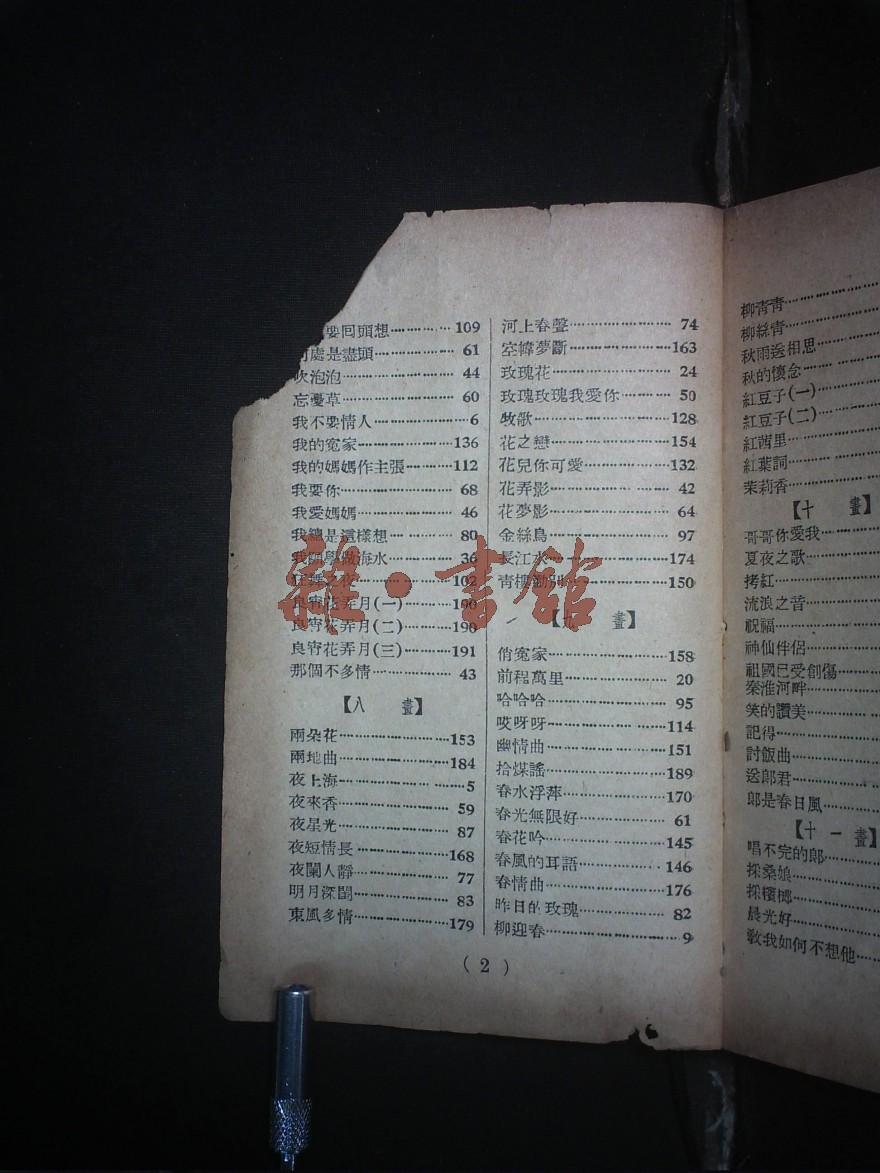 要回頭想 109
處是盡頭 61
吹泡泡 44
忘憂草 60
我不要情人 6
我的寃家 136
我的媽媽作主張 112
我要你 68
我愛媽媽 46
我總是這樣想 80
我願學做海水 36
狂舞之夜 102
良宵花弄月(一) 190
良宵花弄月(二) 190
良宵花弄月(三) 191
那個不多情 43
【八 畫】
兩朶花 153
兩地曲 184
夜上海 5
夜來香 59
夜星光 87
夜短情長 168
夜闌人靜 77
明月深閨 83
東風多情 179
河上春聲 74
空幃夢斷 163
玫瑰花 24
玫瑰玫瑰我愛你 50
牧歌 128
花之戀 154
花兒你可愛 132
花弄影 42
花夢影 64
金絲鳥 97
長江水 174
青樓勸別 150
【九 畫】
俏寃家 158
前程萬里 20
哈哈哈 95
哎呀呀 114
幽情曲 151
拾煤謠 189
春水浮萍 170
春光無限好 61
春花吟 145
春風的耳語 146
春情曲 176
昨日的玫瑰 82
柳迎春 9
(2)
柳青青
柳絲青
秋雨送相思
秋的懷念
紅豆子(一)
紅豆子(二)
紅茜里
紅葉詞
茉莉香
【十 畫】
哥哥你愛我
夏夜之歌
拷紅
流浪之音
祝福
神仙伴侶
祖國已受創傷
秦淮河畔
笑的讚美
記得
討飯曲
送郎君
郎是春日風
【十一畫】
唱不完的郎
採桑娘
採檳榔
晨光好
敎我如何不想他
雜·書館